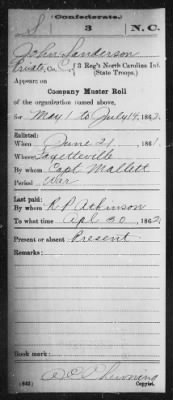 Confederate.
S 3 N.C.
John Sanderson
Private, Co. 3 Reg't North Carolina Inf.
(State Troops.)
Appears on
Company Muster Roll
of the organization named above,
for May 1 to July 19, 1862.
Enlisted:
When June 21, 1861.
Where Fayetteville
By whom Capt Mallett
Period War
Last paid:
By whom R P Atkinson
To what time Apl 30, 1862.
Present or absent Present
Remarks:
Book mark:
(642) Copyist.